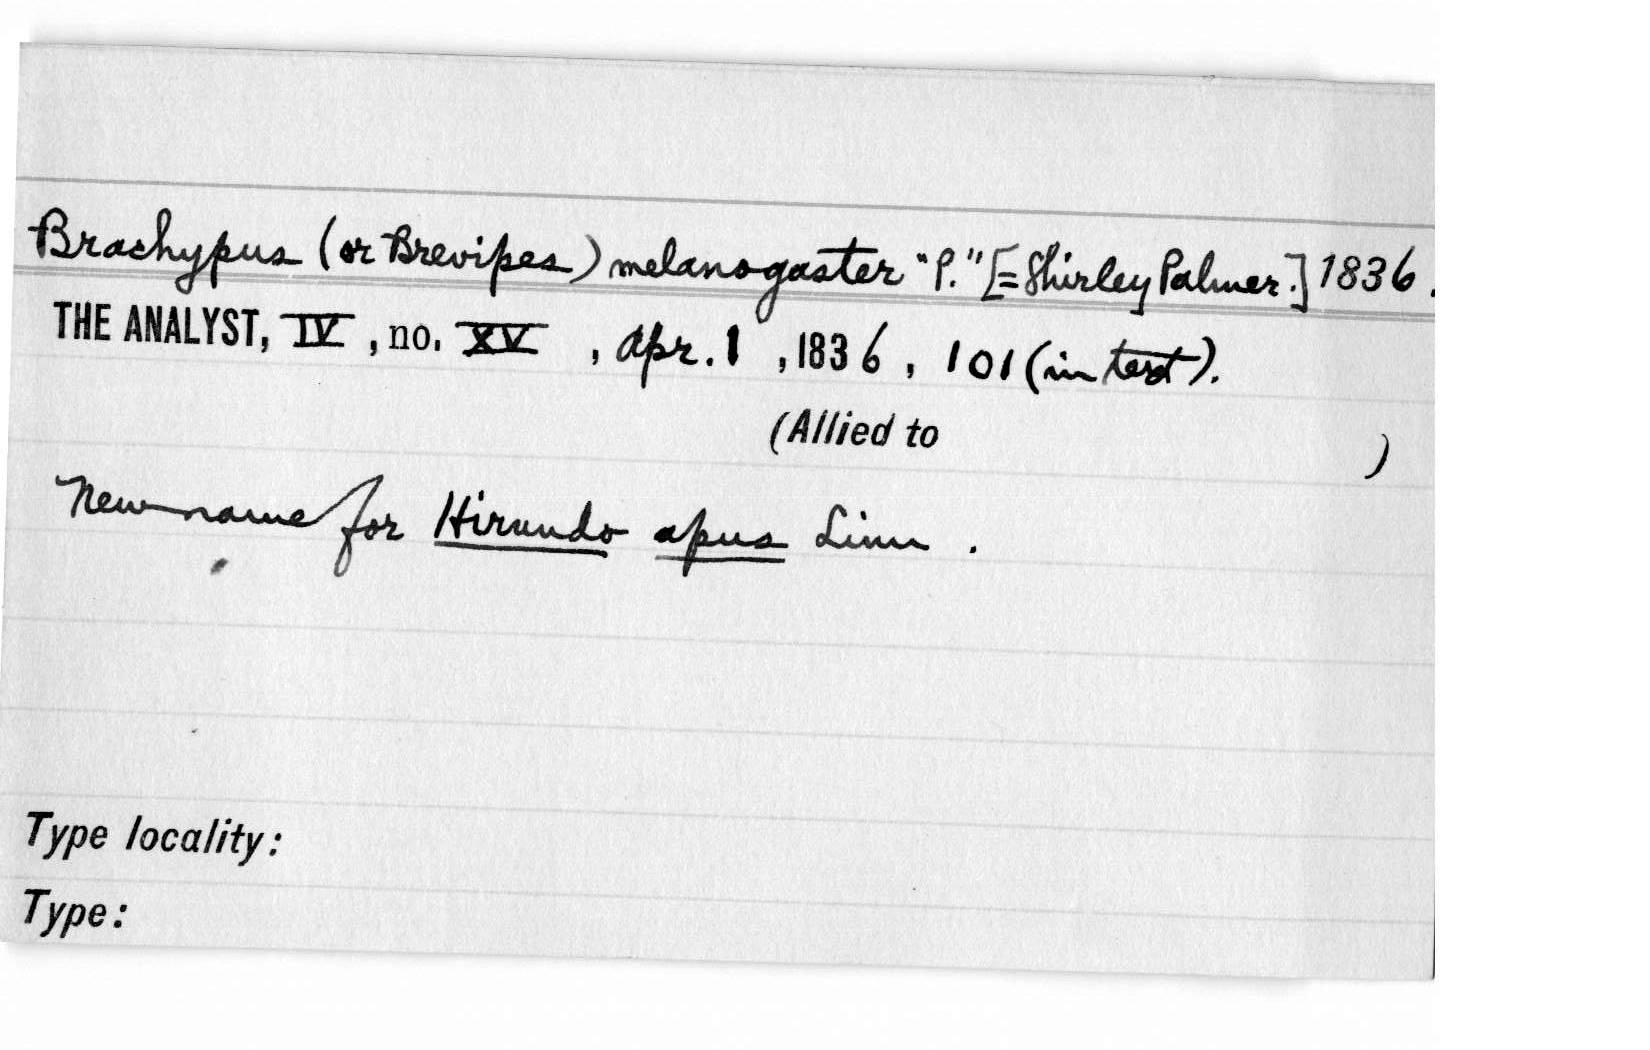 Brachypus (or Brevipes) melanogaster "P." [= Shirley Palmer.] 1836.
THE ANALYST, IV, no. XV, Apr. 1, 1836, 101 (in text).
(Allied to )
New name for Hirundo apus Linn.
Type locality:
Type: